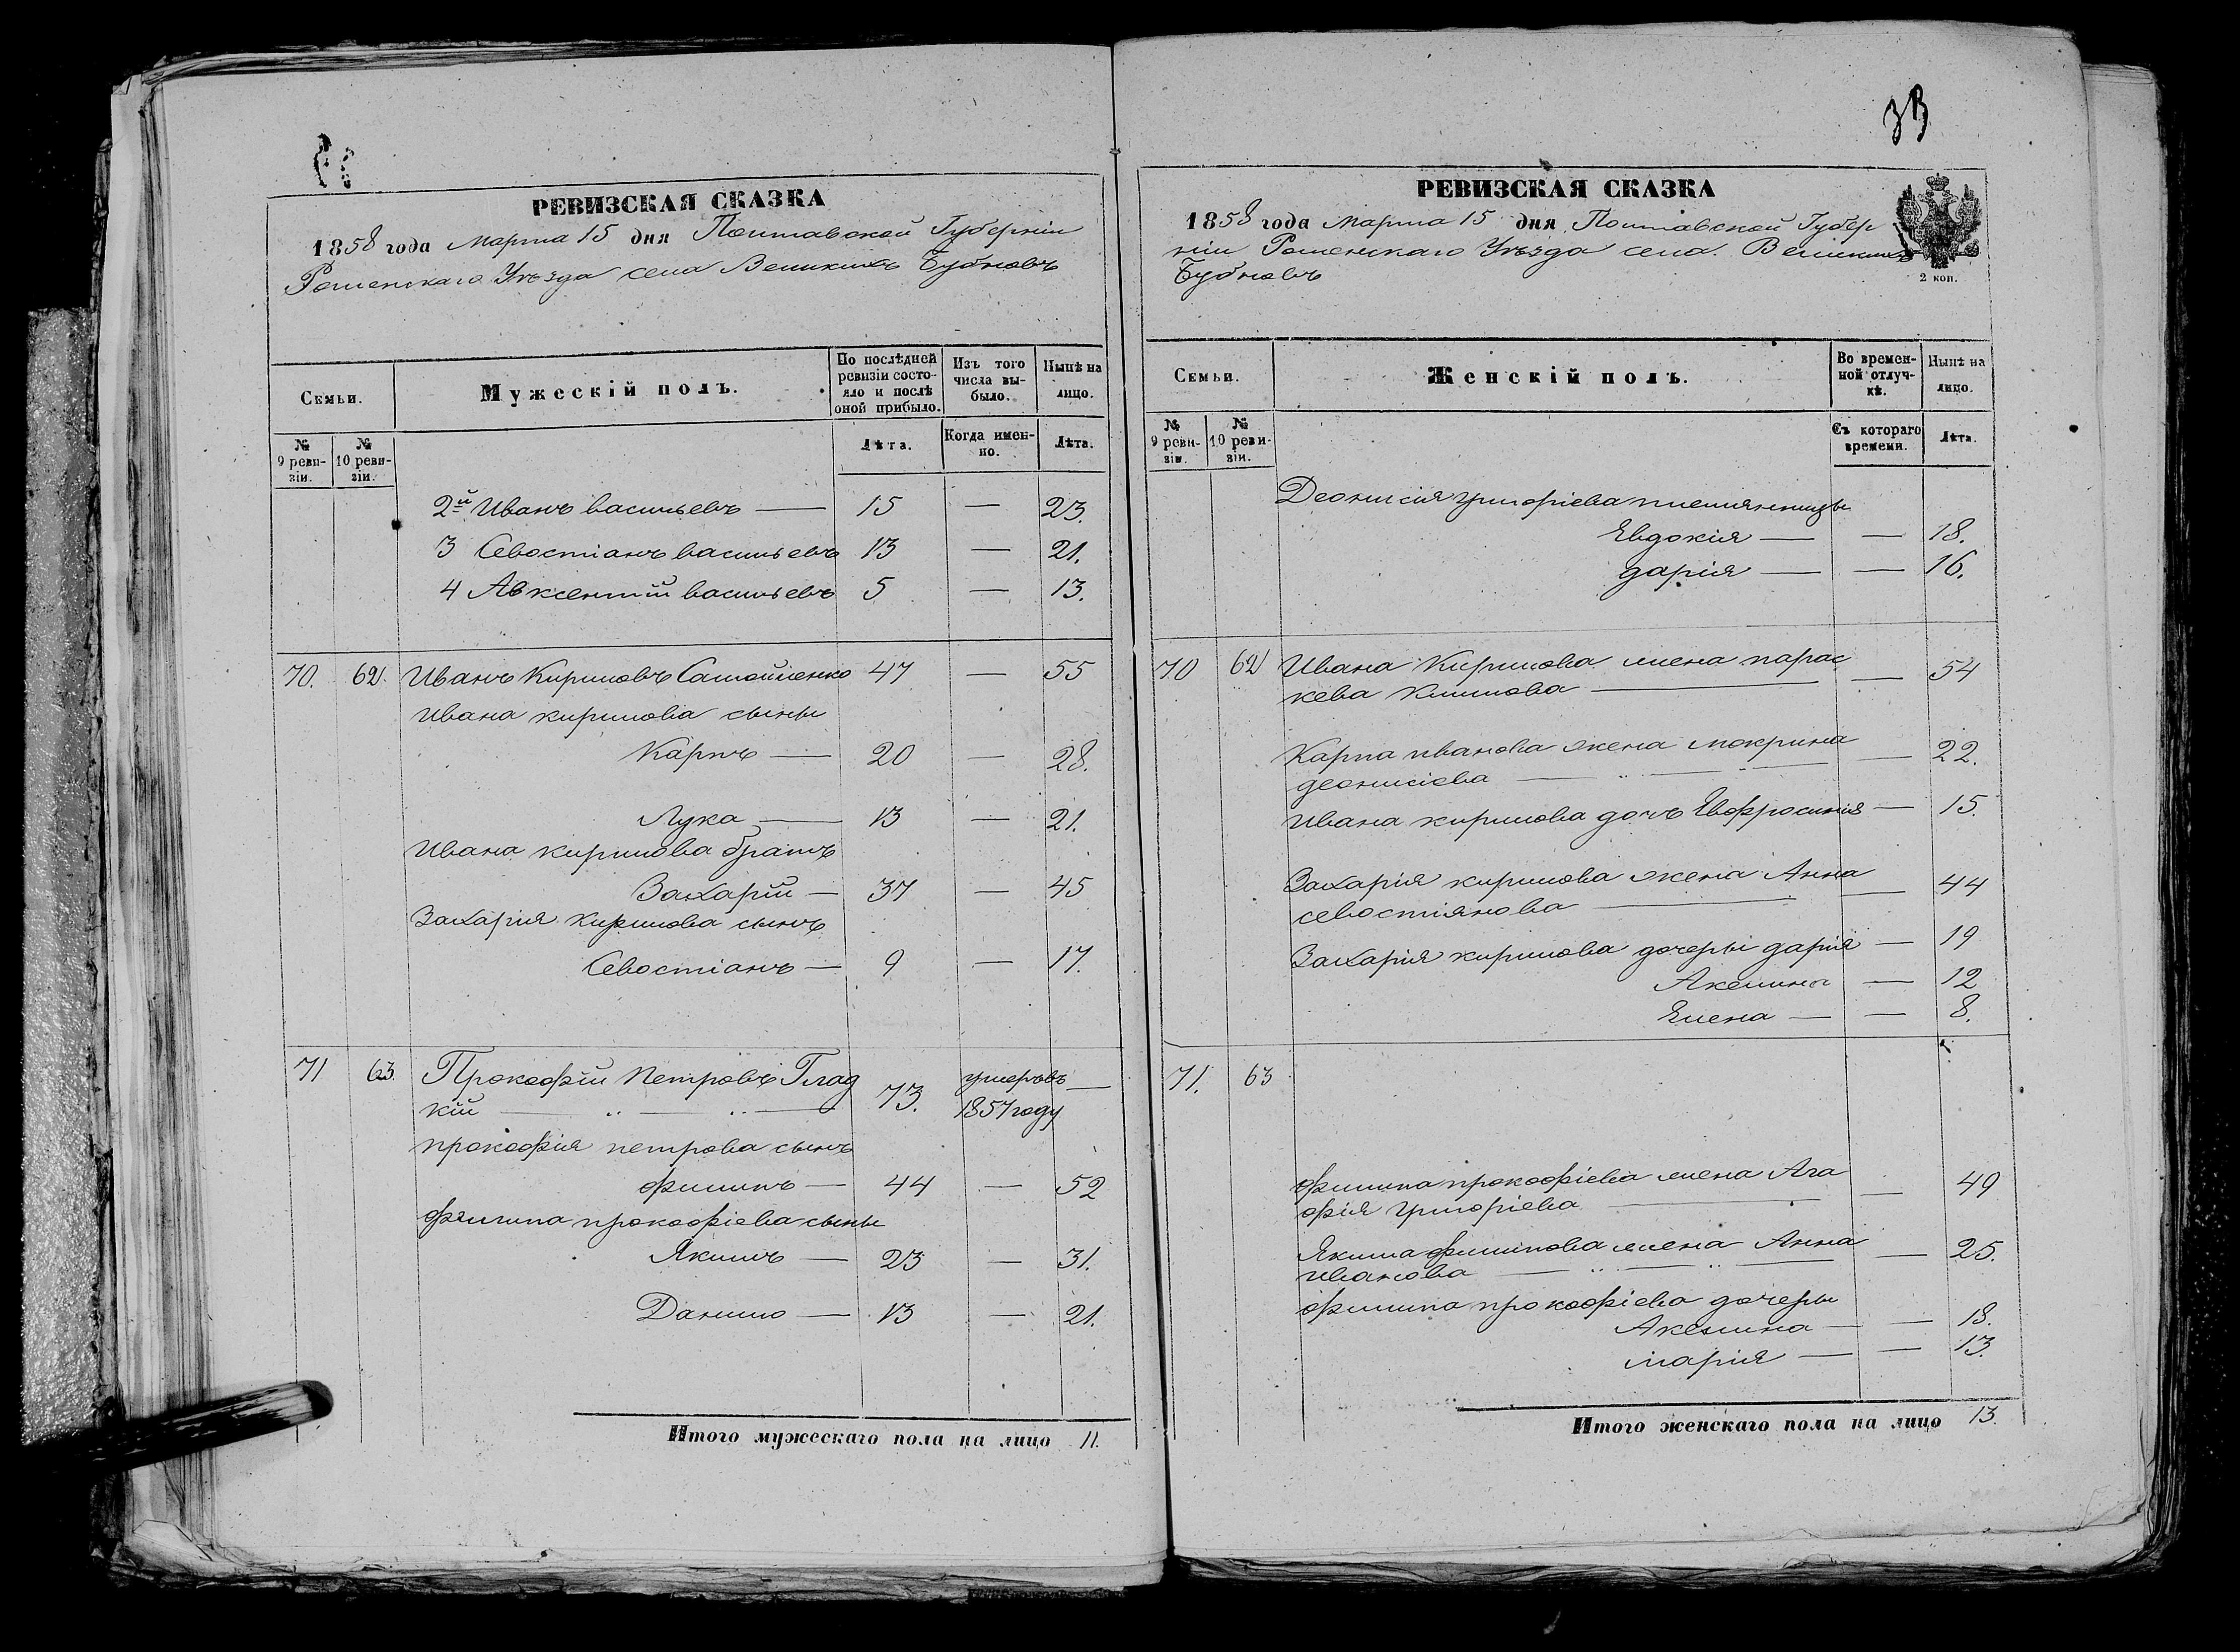 РЕВИЗСКАЯ СКАЗКА
1858 года Марта 15 дня Полтавской Губерніи
Роменскаго Уѣзда села Великихъ Бубновъ
Семьи.
Мужескій полъ.
По послѣдней ревизіи состояло и послѣ оной прибыло.
Изъ того числа выбыло.
Нынѣ на лицо.
№ 9 ревизіи.
№ 10 ревизіи.
Лѣта.
Когда именно.
Лѣта.
2й Иванъ васильевъ — 15 — 23.
3 Севостіанъ васильевъ 13 — 21.
4 Авксентій васильевъ 5 — 13.
70. 62. Иванъ Кириловъ Самойленко 47 — 55
Ивана кирилова сыны
Карпъ — 20 — 28.
Лука — 13 — 21.
Ивана кирилова братъ
Захарій — 37 — 45
Захарія кирилова сынъ
Севостіанъ — 9 — 17.
71 63. Прокофій Петровъ Глад 73. умеръ въ —
кій — „ — „ — 1857 году
прокофія петрова сынъ
филипъ — 44 — 52
филипа прокофіева сыны
Якимъ — 23 — 31.
Данило — 13 — 21.
Итого мужескаго пола на лицо 11.
33
РЕВИЗСКАЯ СКАЗКА
1858 года Марта 15 дня Полтавской Губер
ніи Роменскаго Уѣзда села Великихъ
Бубновъ
2 коп.
Семьи.
Женскій полъ.
Во временной отлучкѣ.
Нынѣ на лицо.
№ 9 ревизіи.
№ 10 ревизіи.
Съ котораго времени.
Лѣта.
Деонисія григоріева племянницы
Евдокія — — 18.
дарія — — 16.
70 62 Ивана Кирилова жена парас
кева климова — — 54
Карпа иванова жена мокрина — 22.
деонисіева — „ — „ —
Ивана кирилова дочь Евфросинія — 15.
Захарія кирилова жена Анна
севостіянова — — 44
Захарія кирилова дочеры дарія — 19
Акелина — 12
Елена — — 8.
71. 63
филипа прокофіева жена Ага
фія григоріева — — 49
Якима филипова жена Анна — 25.
иванова — „ — „ —
филипа прокофіева дочеры
Акелина — — 18.
марія — — 13.
Итого женскаго пола на лицо 13.